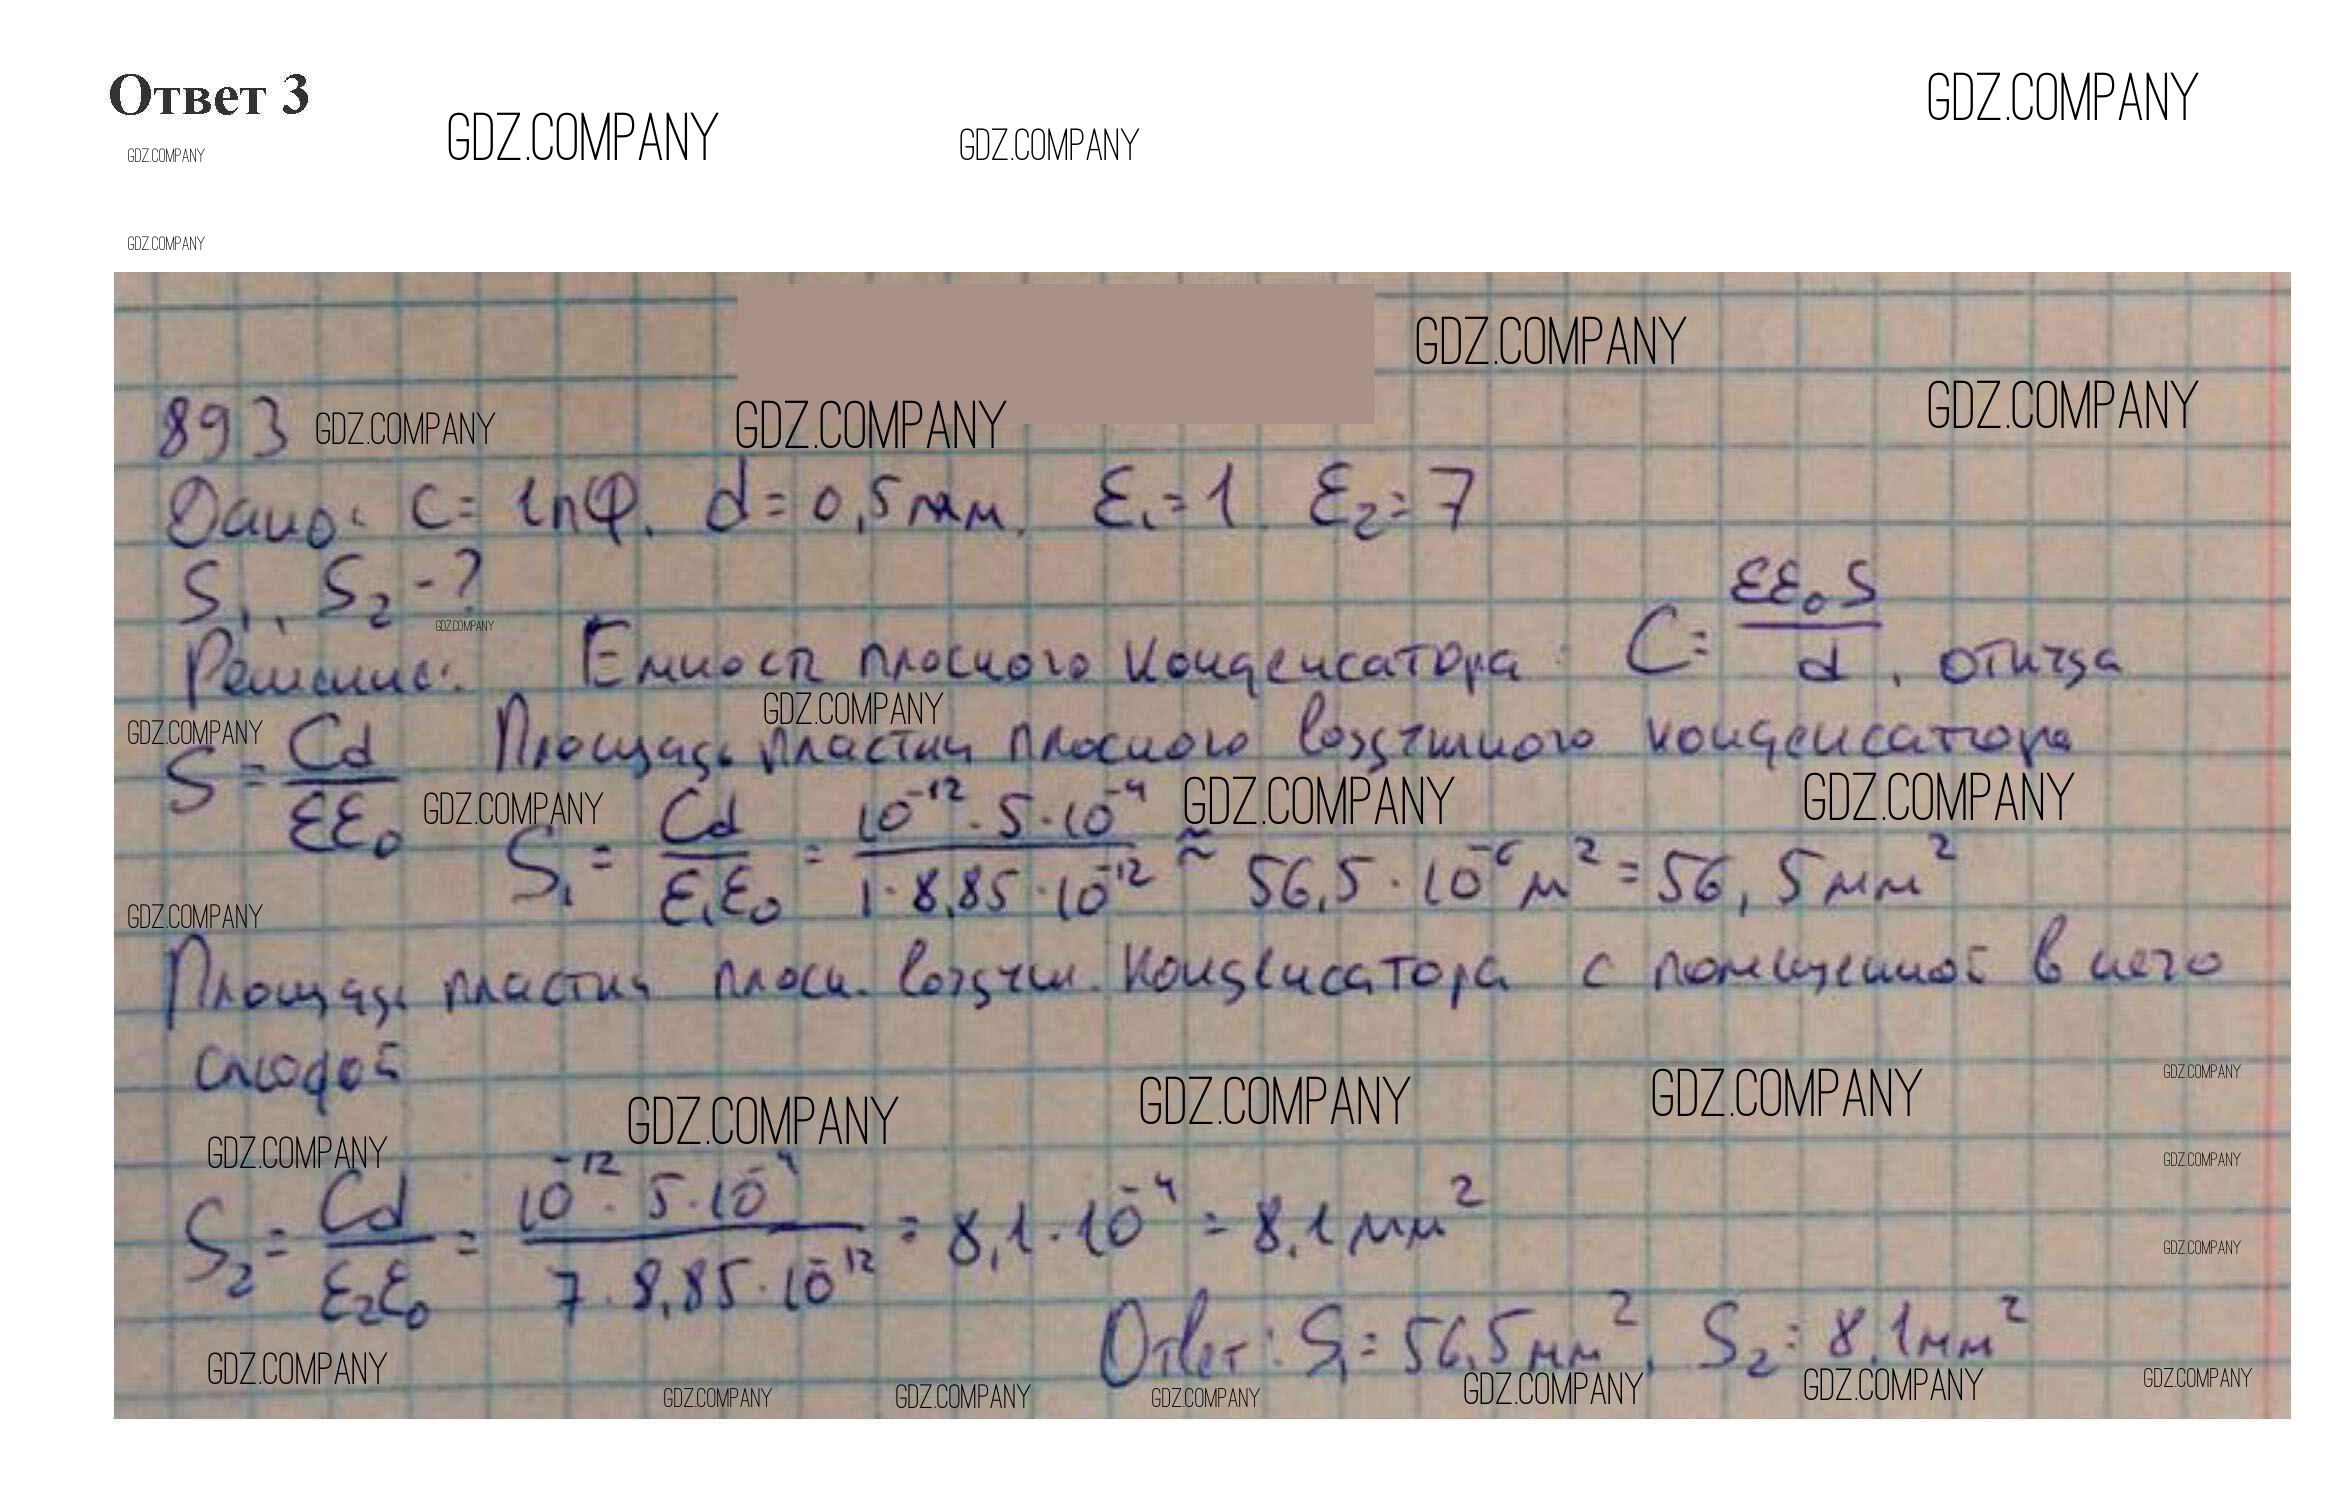 Ответ 3
GDZ.COMPANY
GDZ.COMPANY
GDZ.COMPANY
GDZ.COMPANY
GDZ.COMPANY
GDZ.COMPANY
GDZ.COMPANY
893 GDZ.COMPANY GDZ.COMPANY
Дано: C = 1пФ. d = 0,5 мм. ε₁ = 1 ε₂ = 7
S₁, S₂ - ?
GDZ.COMPANY
Решение: Емкость плоского конденсатора C = εε₀S / d, откуда
GDZ.COMPANY GDZ.COMPANY
S = Cd / εε₀ Площадь пластин плоского воздушного конденсатора
GDZ.COMPANY GDZ.COMPANY GDZ.COMPANY
S₁ = Cd / ε₁ε₀ = 10⁻¹² · 5 · 10⁻⁴ / 1 · 8,85 · 10⁻¹² ≈ 56,5 · 10⁻⁶ м² = 56,5 мм²
GDZ.COMPANY
Площадь пластин плоск. воздуш. конденсатора с помещенной в него
слюдой
GDZ.COMPANY GDZ.COMPANY GDZ.COMPANY GDZ.COMPANY
GDZ.COMPANY GDZ.COMPANY
S₂ = Cd / ε₂ε₀ = 10⁻¹² · 5 · 10⁻⁴ / 7 · 8,85 · 10⁻¹² = 8,1 · 10⁻⁴ = 8,1 мм²
GDZ.COMPANY
Ответ: S₁ = 56,5 мм², S₂ = 8,1 мм²
GDZ.COMPANY GDZ.COMPANY GDZ.COMPANY GDZ.COMPANY GDZ.COMPANY GDZ.COMPANY GDZ.COMPANY